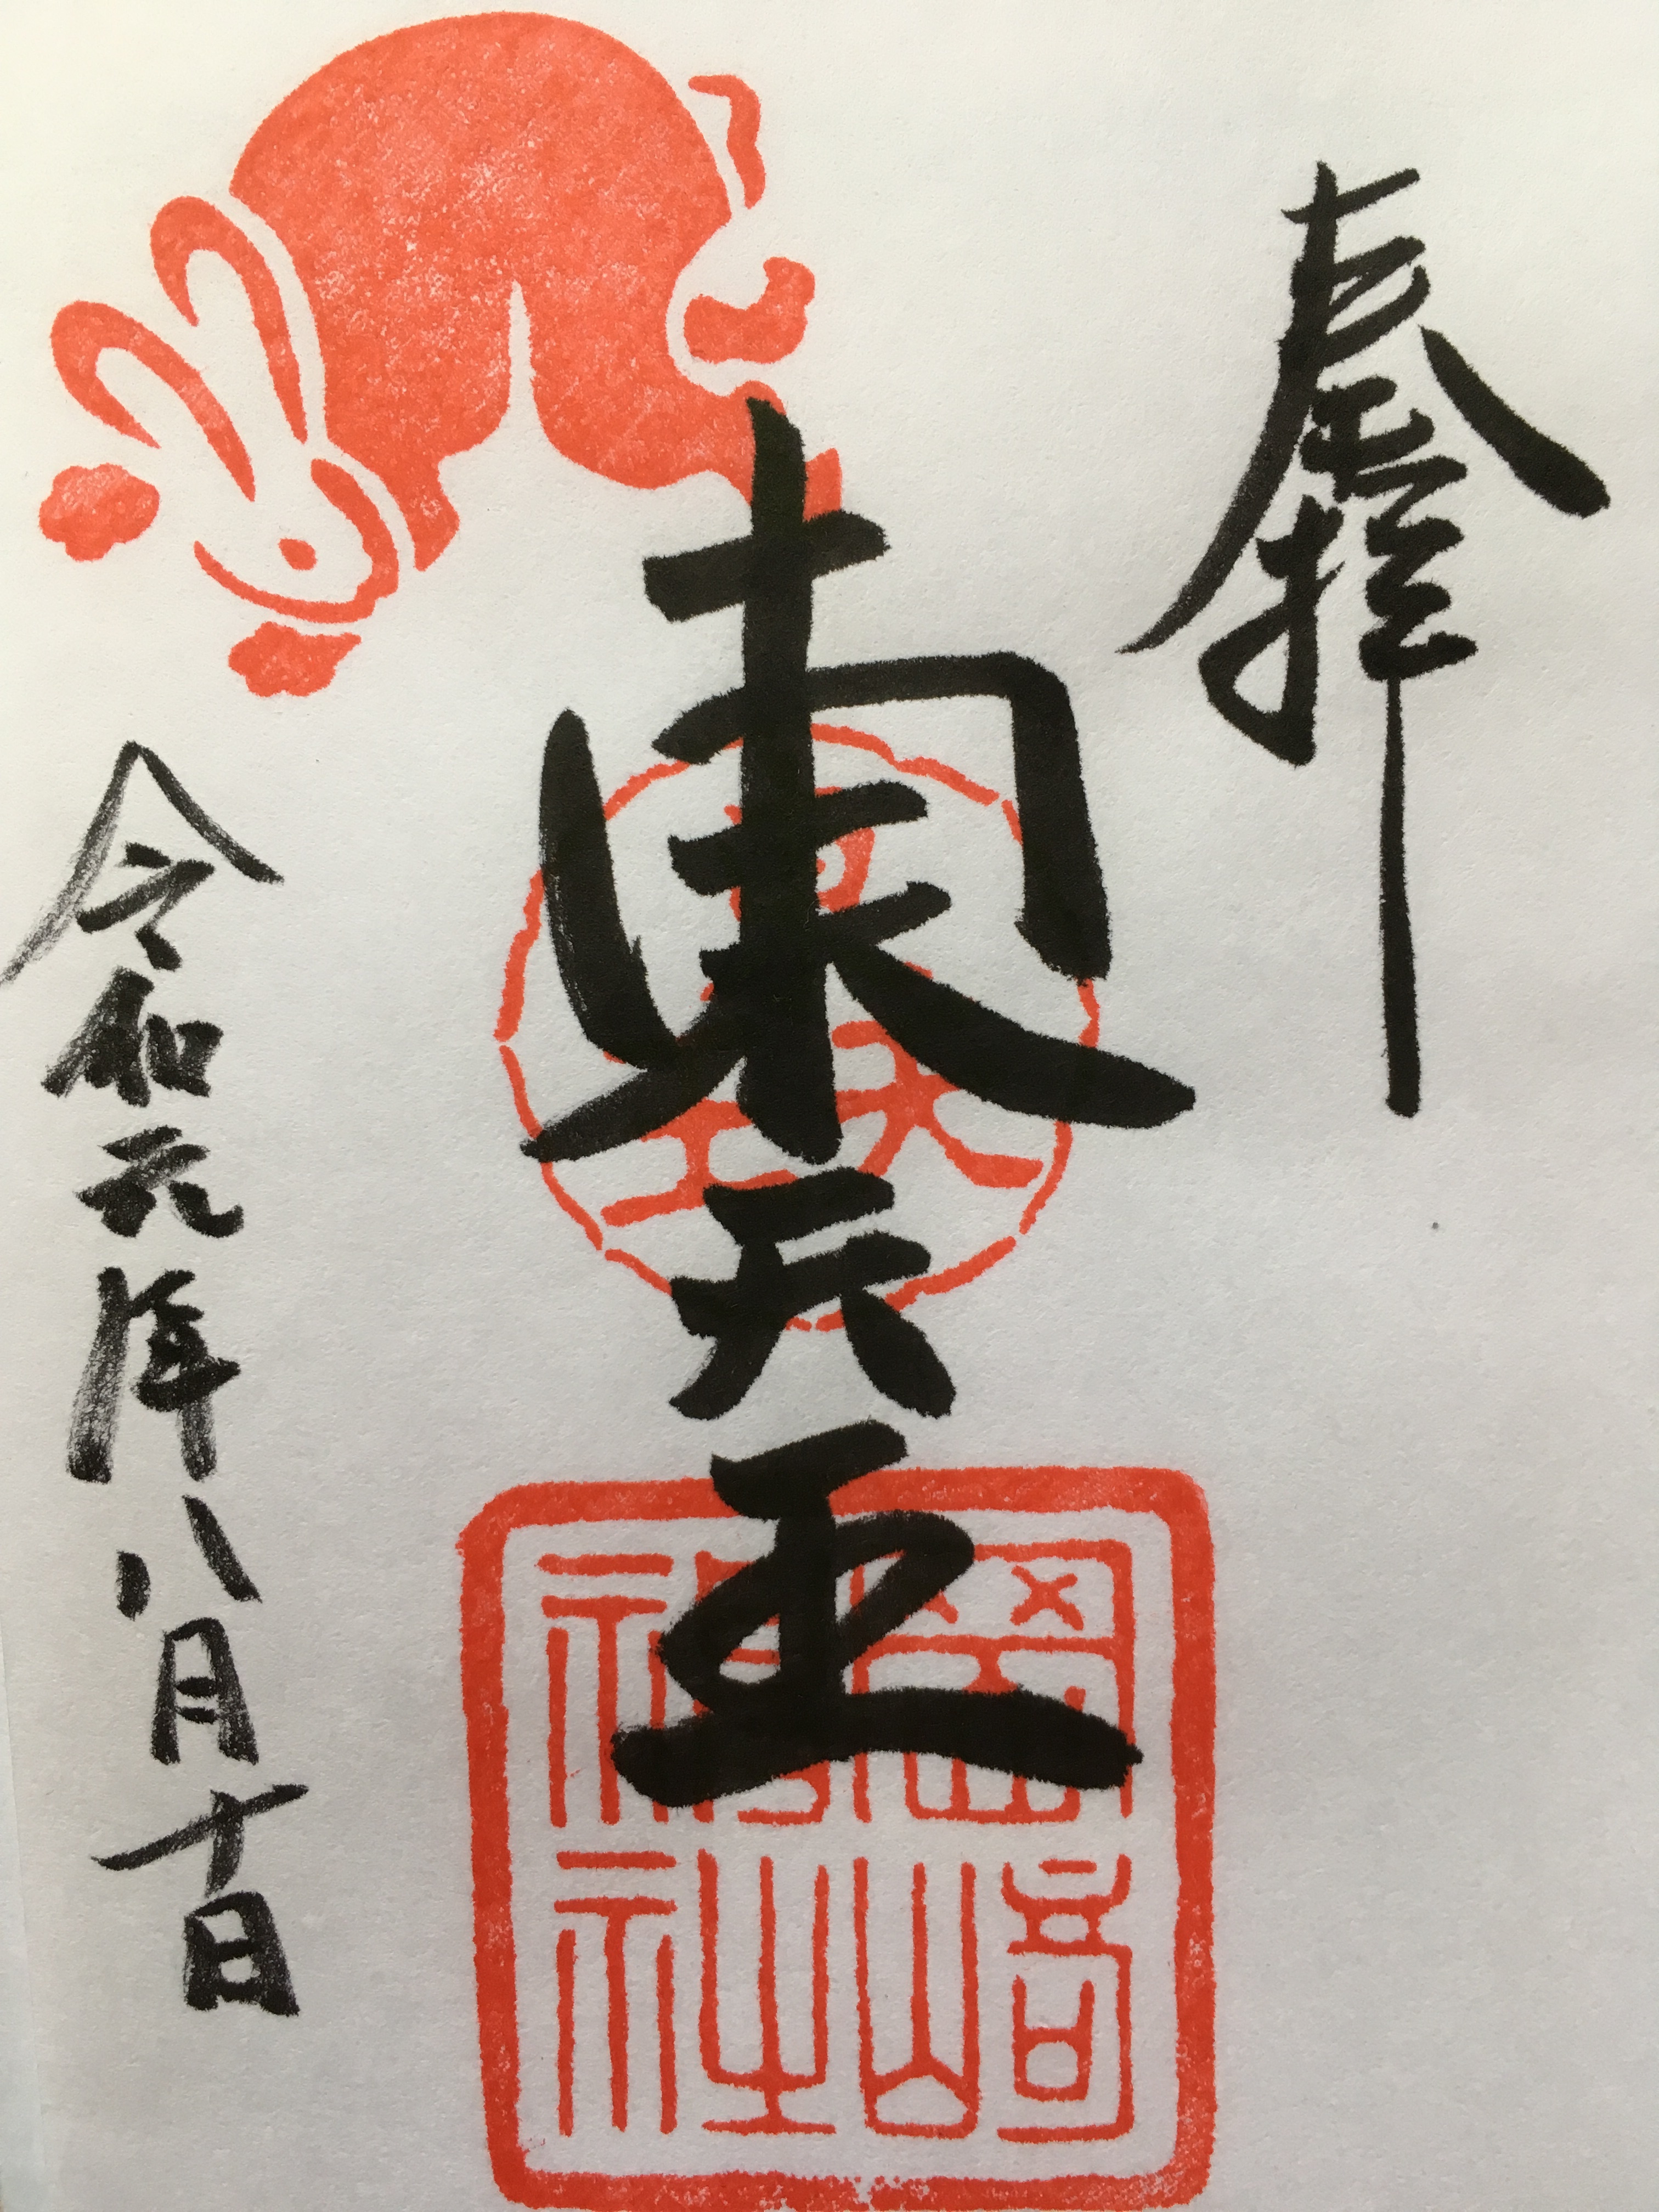 奉拝
東天王
岡崎神社
令和元年八月十日